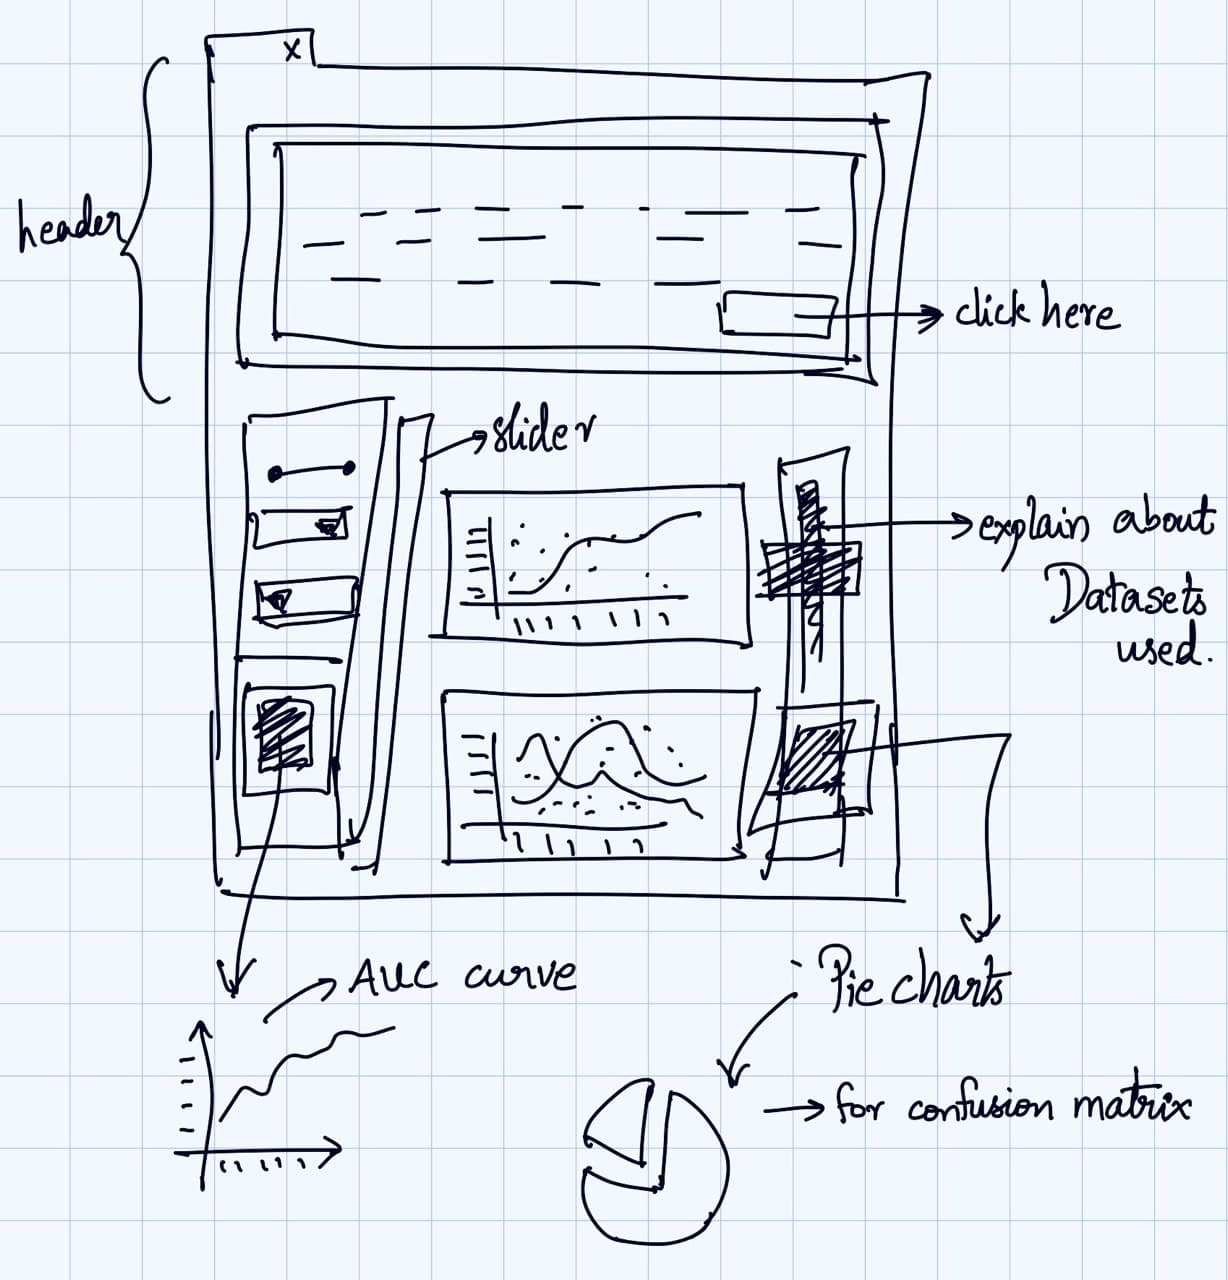 x
header
click here
slider
explain about
Datasets
used.
AUC curve
Pie charts
→ for confusion matrix